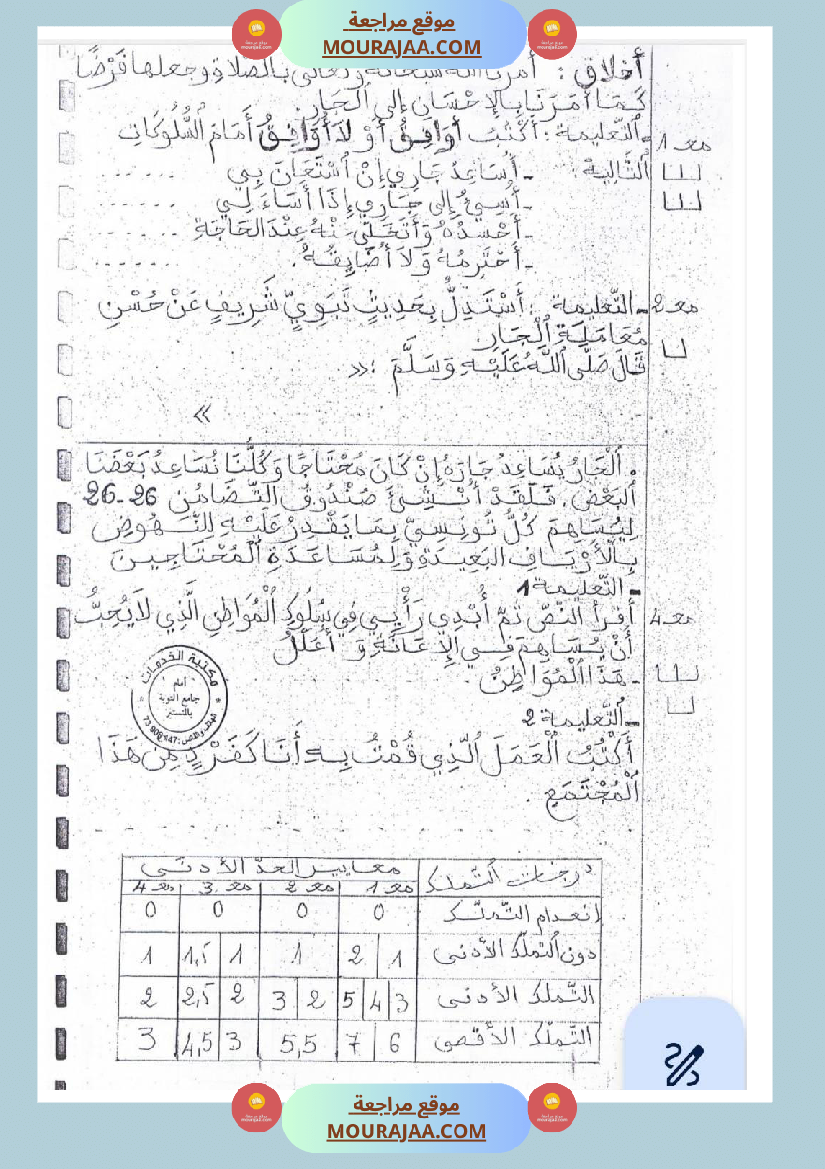 موقع مراجعة
MOURAJAA.COM
أخلاق : أمرنا الله سبحانه وتعالى بالصلاة وجعلها فَرْضًا
كَمَا أَمَرَنَا بِالإِحْسَانِ إِلَى الْجَارِ.
مع 1 - التّعليمة : أَكْتُبُ أُوَافِقُ أَوْ لَا أُوَافِقُ أَمَامَ السُّلُوكَاتِ
التَّالِيَةِ - أُسَاعِدُ جَارِي إِنْ اسْتَعَانَ بِي .......
- أُسِيءُ إِلَى جَارِي إِذَا أَسَاءَ لِي ......
- أَحْسُدُهُ وَأَتَخَلَّى عَنْهُ عِنْدَ الحَاجَةِ ......
- أَحْتَرِمُهُ وَلَا أُضَايِقُهُ. .......
مع 2 - التّعليمة : أَسْتَدِلُّ بِحَدِيثٍ نَبَوِيٍّ شَرِيفٍ عَنْ حُسْنِ
مُعَامَلَةِ الْجَارِ
قَالَ صَلَّى اللَّهُ عَلَيْهِ وَسَلَّمَ : «
»
. اَلْجَارُ يُسَاعِدُ جَارَهُ إِنْ كَانَ مُحْتَاجًا وَكُلُّنَا نُسَاعِدُ بَعْضَنَا
البَعْضَ. فَلَقَدْ أُنْشِئَ صُنْدُوقُ التَّضَامُنِ 26-26
لِيُسَاهِمَ كُلُّ تُونِسِيٍّ بِمَا يَقْدِرُ عَلَيْهِ لِلنُّهُوضِ
بِالْأَرْيَافِ البَعِيدَةِ وَلِمُسَاعَدَةِ الْمُحْتَاجِينَ
- التّعليمة 1
مع 4 أَقْرَأُ النَّصَّ ثُمَّ أُبْدِي رَأْيِي فِي سُلُوكِ الْمُوَاطِنِ الَّذِي لَا يُحِبُّ
أَنْ يُسَاهِمَ فِي الإِعَانَةِ وَ أُعَلِّلُ
- هَذَا الْمُوَاطِنُ
مكتبة الخدمات
أمام
جامع التوبة
- التّعليمة 2
أَكْتُبُ الْعَمَلَ الَّذِي قُمْتُ بِهِ أَنَا كَفَرْدٍ مِنْ هَذَا
الْمُجْتَمَعِ.
درجات التملك معايير الحدّ الأدنى
مع 1 مع 2 مع 3 مع 4
انعدام التملّك 0 0 0 0
دون التملّك الأدنى 1 2 1 1 1,5 1
التّملك الأدنى 3 4 5 2 3 2 2,5 2
التملّك الأقصى 6 7 5,5 3 4,5 3
موقع مراجعة
MOURAJAA.COM